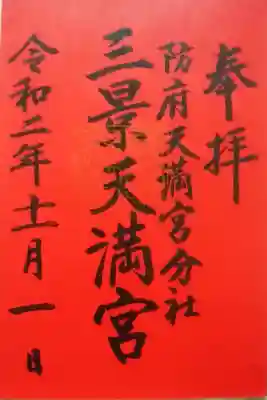 奉拝
防府天満宮分社
三景天満宮
令和二年十一月一日